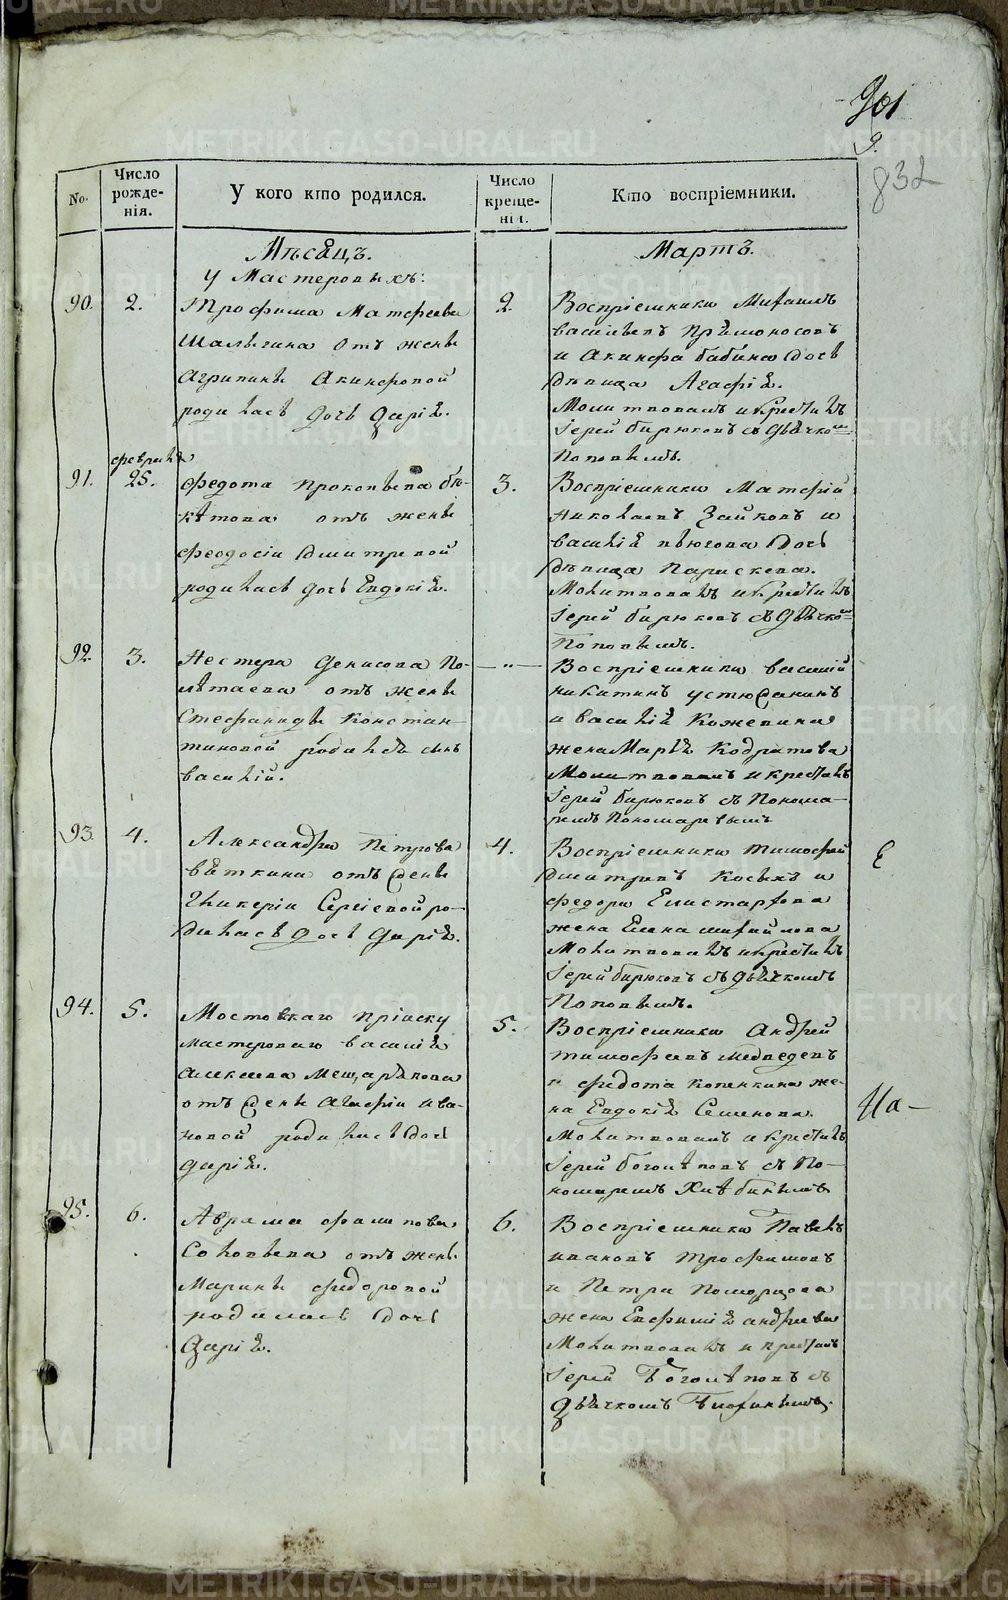 901
9.
832
No.
Число рожде- нія.
У кого кто родился.
Число креще- нія.
Кто воспріемники.
Мѣсяцъ.
Мартъ.
У Мастеровыхъ:
90.
2.
Трофима Матфеева
Шалыгина отъ жены
Агрипины Акинфовой
родилась дочь Дарія.
2.
Воспріемники Михаилъ
Васильевъ Прямоносовъ
и Акинфа Бабина дочь
дѣвица Агафія.
Молитвовалъ и крестилъ
Іерей Бирюковъ съ дьячко
Поповымъ.
91.
февраля
25.
Федота Прокопьева Бѣ-
кѣтова отъ жены
Феодосіи Дмитревой
родилась дочь Евдокія.
3.
Воспріемники Матфій
Николаевъ Зайковъ и
Василія дочь
дѣвица Парискева.
Молитвовалъ и крестилъ
Іерей Бирюковъ съ дьячко
Поповымъ.
92.
3.
Нестера Денисова По-
лѣтаева отъ жены
Стефаниды Констан-
тиновой родился сынъ
Василій.
— „ —
Воспріемники Василій
Никитинъ Устюжанинъ
и Василія Кожевина
жена Марія Кодратова
Молитвовалъ и крестилъ
Іерей Бирюковъ съ Понома-
ремъ Пономаревымъ
93.
4.
Александра Петрова
Вяткина отъ жены
Гликеріи Сергіевой ро-
дилась дочь Дарія.
4.
Воспріемники Тимофей
Дмитревъ Косыхъ и
Федора Елистархова
жена Елена Михайлова
Молитвовалъ и крестилъ
Іерей Бирюковъ съ дьячкомъ
Поповымъ.
94.
5.
Мостовскаго пріиску
мастероваго Василія
Алексеева Мещерякова
отъ жены Агафіи Ива-
новой родилась дочь
Дарія.
5.
Воспріемники Андрей
Тимофеевъ Медведевъ
и Федота Копенкина же-
на Евдокія Семенова.
Молитвовалъ и крестилъ
Іерей Боголѣповъ съ По-
номаремъ Хлѣбинымъ
На —
95.
6.
Аврама Филипова
Соловьева отъ жены
Марины Федоровой
родилась дочь
Дарія.
6.
Воспріемники Павелъ
Ивановъ Трофимовъ
и Петра Поморцова
жена Евфимія Андреева
Молитвовалъ и крестилъ
Іерей Боголѣповъ съ
дьячкомъ
METRIKI.GASO-URAL.RU